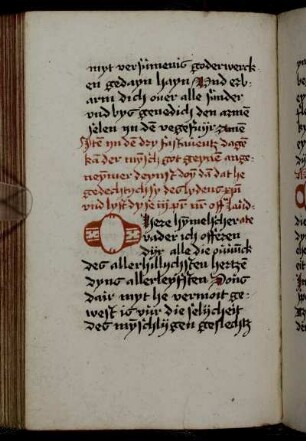 myt versümenis goderwerck-
en gedayn hayn Vnd erb-
arm dich ouer alle sünder
vnd bys genedich den armē
selen jn dē vegefuyr Amē
Jtē jn dē dry fastauentz dagē
kā der mȳsch got geynē ange-
neymer deynst doȳ dā dat he
gedechtych sy des lydens
vnd lyst dyse iij
O here hȳmelscher
vader ich offeren
dyr alle die
des allerhillychsten hertzē
dyns allerleyfsten Sons
dair myt he vermoit ge-
west is vur die selicheit
des mȳschlygen geslechtz